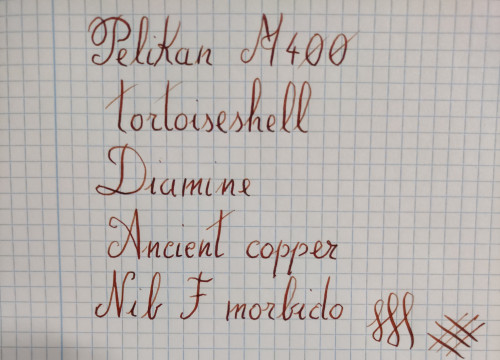 Pelikan M400
tortoiseshell
Diamine
Ancient copper
Nib F morbido